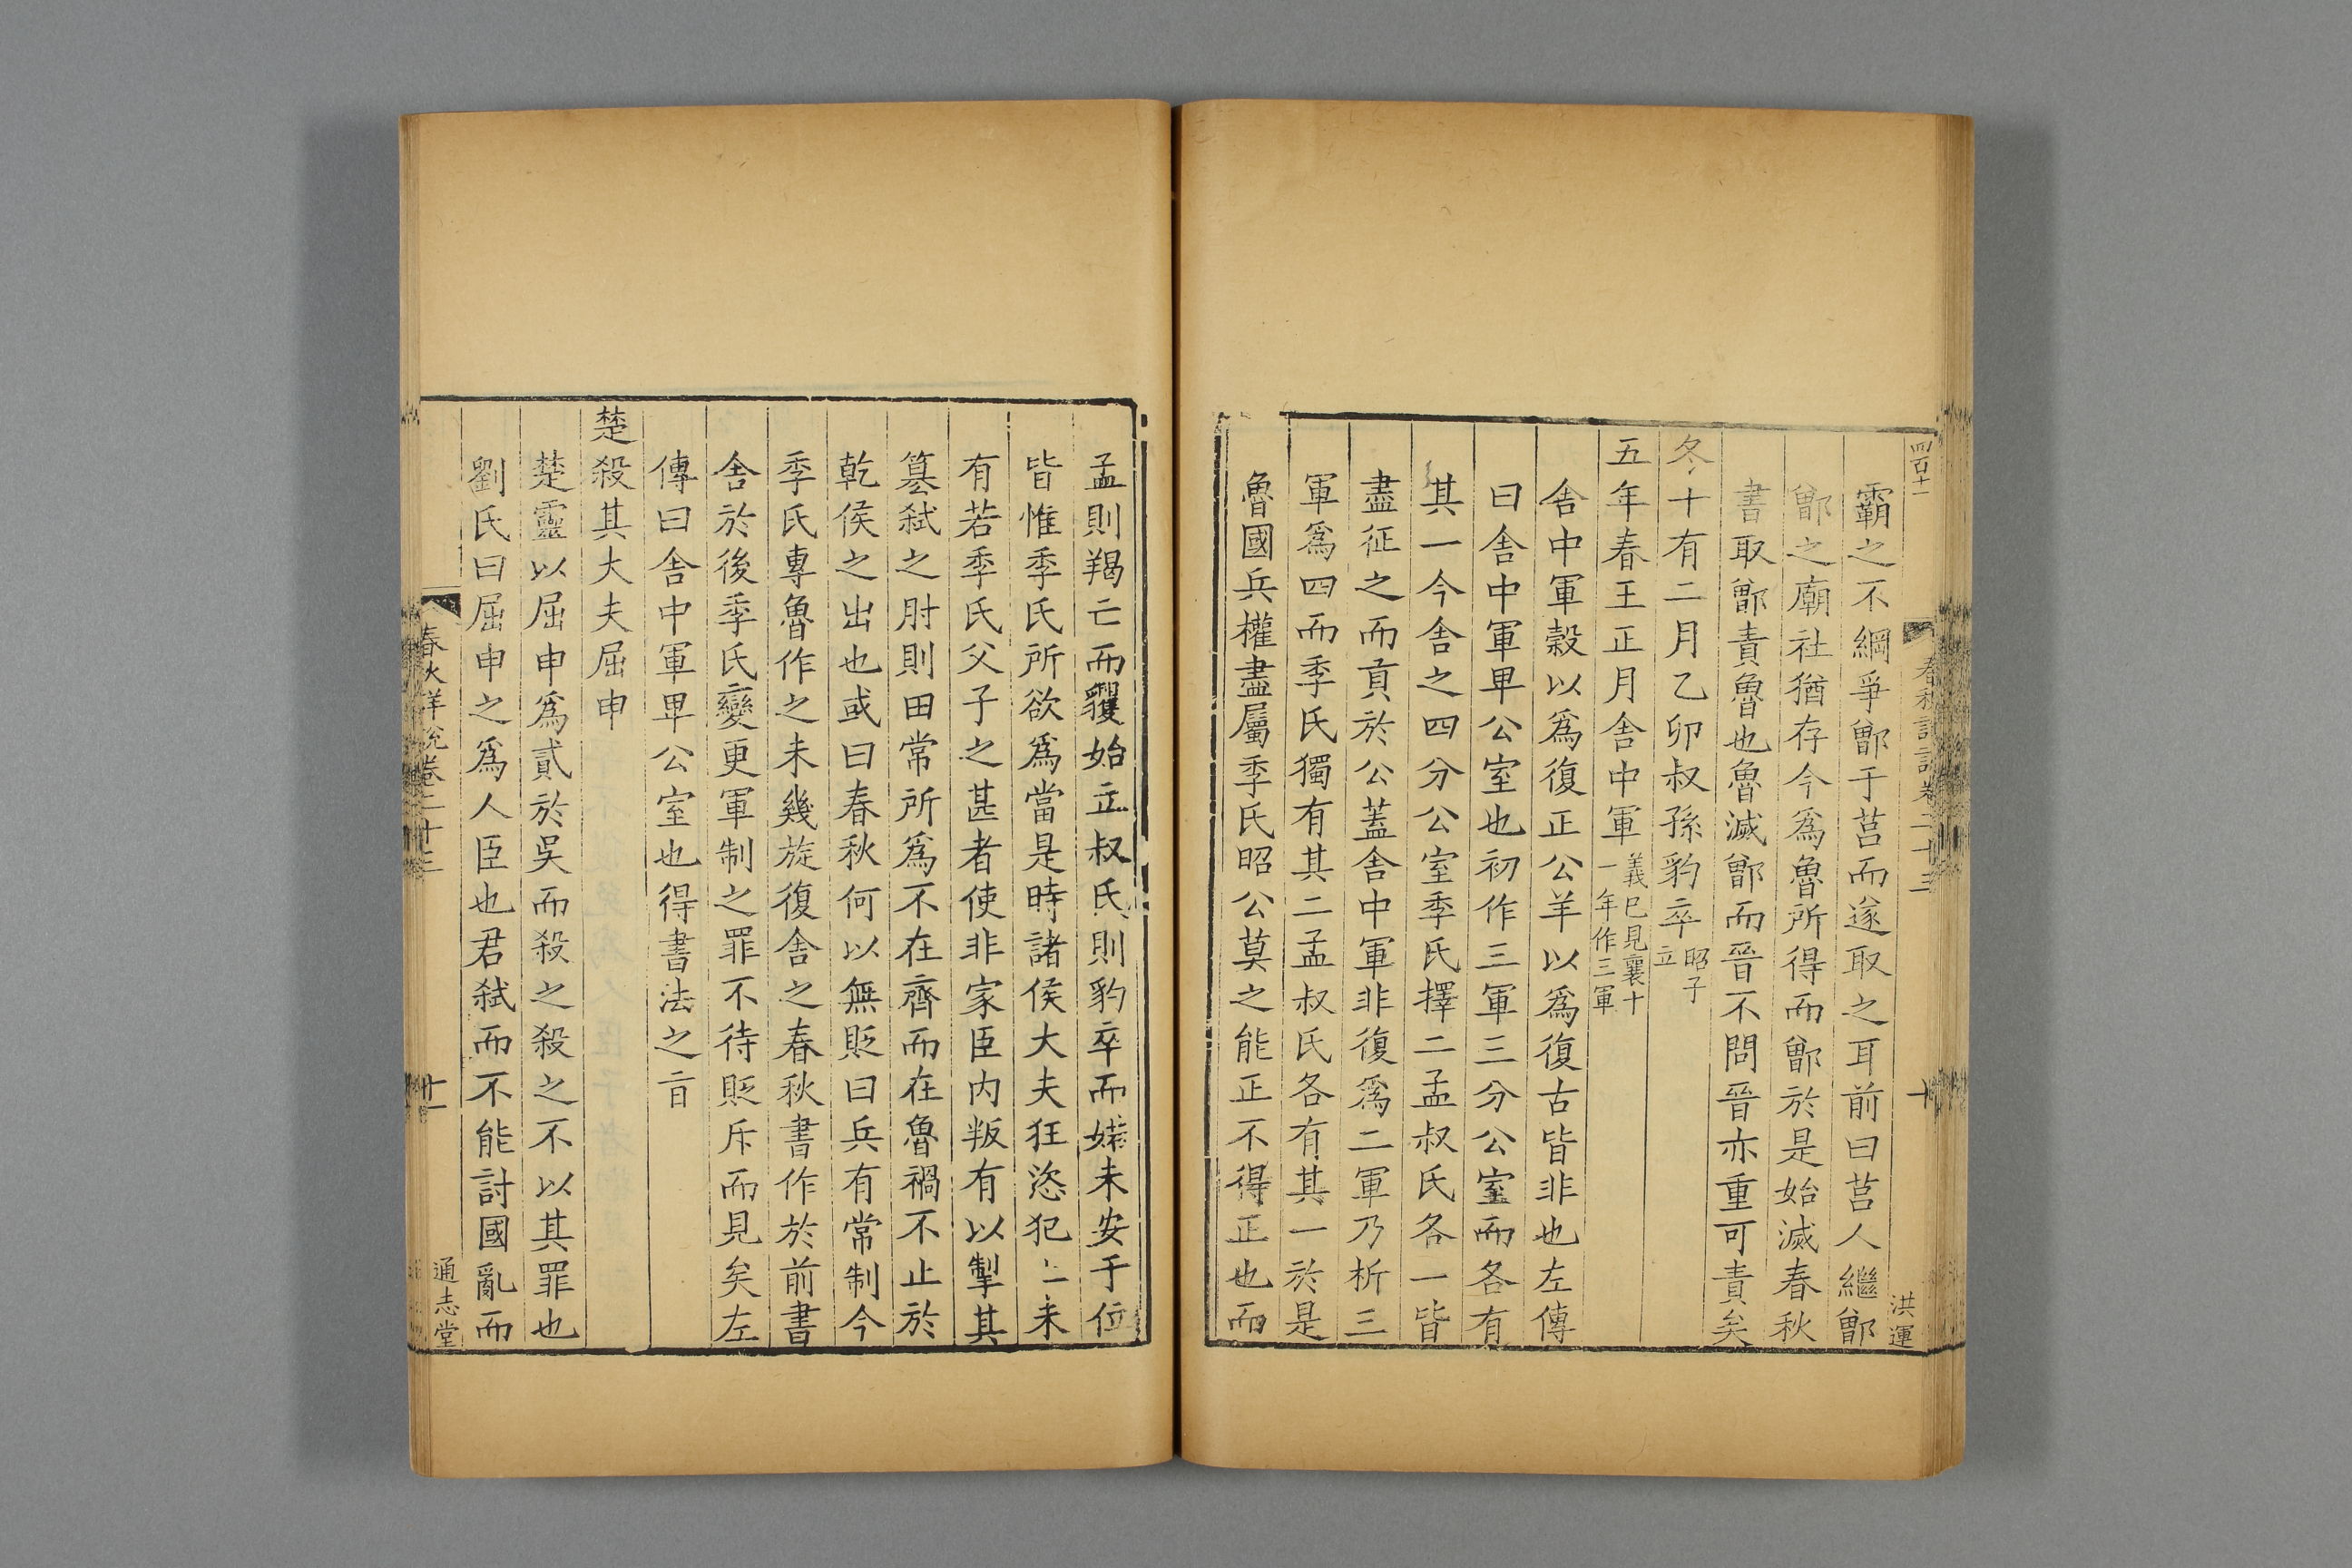 四百十一
春秋詳說卷二十三
十
洪運
霸之不綱爭鄫于莒而遂取之耳前曰莒人繼鄫
鄫之廟社猶存今爲魯所得而鄫於是始滅春秋
書取鄫責魯也魯滅鄫而晉不問晉亦重可責矣
冬十有二月乙卯叔孫豹卒昭子立
五年春王正月舍中軍義已見襄十一年作三軍
舍中軍穀以爲復正公羊以爲復古皆非也左傳
曰舍中軍卑公室也初作三軍三分公室而各有
其一今舍之四分公室季氏擇二孟叔氏各一皆
盡征之而貢於公蓋舍中軍非復爲二軍乃析三
軍爲四而季氏獨有其二孟叔氏各有其一於是
魯國兵權盡屬季氏昭公莫之能正不得正也而
孟則羯亡而貜始立叔氏則豹卒而婼未安于位
皆惟季氏所欲爲當是時諸侯大夫狂恣犯上未
有若季氏父子之甚者使非家臣内叛有以掣其
篡弑之肘則田常所爲不在齊而在魯禍不止於
乾侯之出也或曰春秋何以無貶曰兵有常制今
季氏專魯作之未幾旋復舍之春秋書作於前書
舍於後季氏變更軍制之罪不待貶斥而見矣左
傳曰舍中軍卑公室也得書法之㫖
楚殺其大夫屈申
楚靈以屈申爲貳於吳而殺之殺之不以其罪也
劉氏曰屈申之爲人臣也君弑而不能討國亂而
春秋詳說卷二十三
十一
通志堂